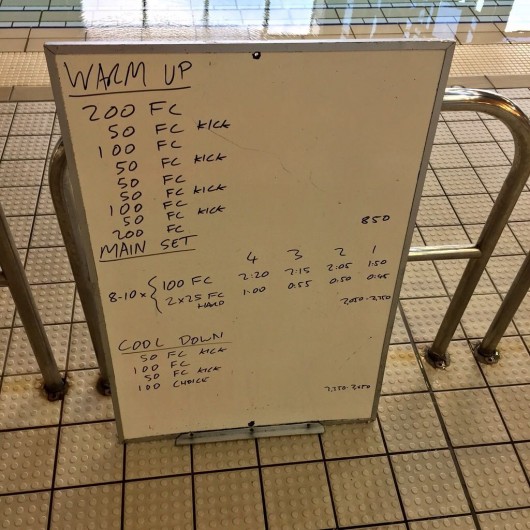 WARM UP
200 FC
50 FC KICK
100 FC
50 FC KICK
50 FC
50 FC KICK
100 FC
50 FC KICK
200 FC
850
MAIN SET
4 3 2 1
8-10 x { 100 FC 2:20 2:15 2:05 1:50
2x25 FC 1:00 0:55 0:50 0:45
HARD
2050-2,350
COOL DOWN
50 FC KICK
100 FC
50 FC KICK
100 CHOICE